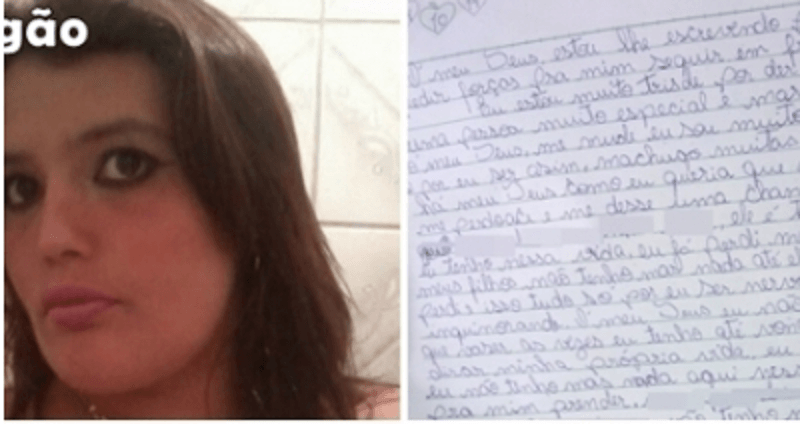 gão
10
meu Deus estou lhe escrevendo
pedir forças pra mim seguir em
Eu estou muito triste por
uma pessoa muito especial e mas
o meu Deus, me mude eu sou muito
por eu ser assim, machugo muitas
há meu Deus como eu queria que
me perdoace e me desse uma chan
ele é
eu tenho nessa vida, eu já perdi
meus filhos não tenho mas nada até
perdi isso tudo so por eu ser nerv
inguinorando. O meu Deus eu não
que vezes as vezes eu tenho até
tirar minha própria vida, eu
eu não tenho mas nada aqui ness
pra mim prender.
não tenho